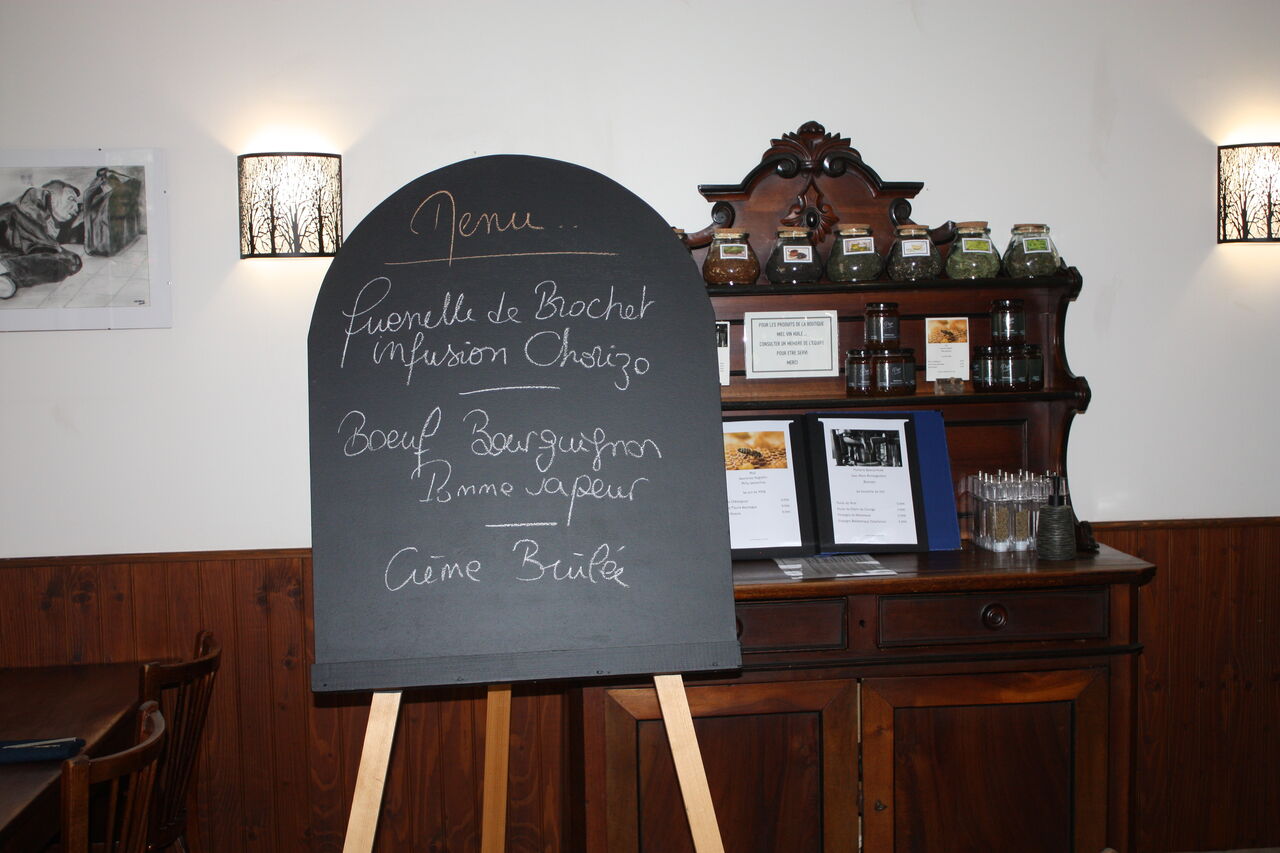 Menu...
Quenelle de Brochet
infusion Chorizo
Boeuf Bourguignon
Pomme vapeur
Crème Brûlée
POUR LES PRODUITS DE LA BOUTIQUE
MIEL VIN HUILE...
CONSULTER UN MEMBRE DE L'EQUIPE
POUR ETRE SERVI
MERCI